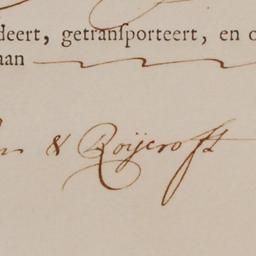 deert, getransporteert, en o
aan
& Roijcroft